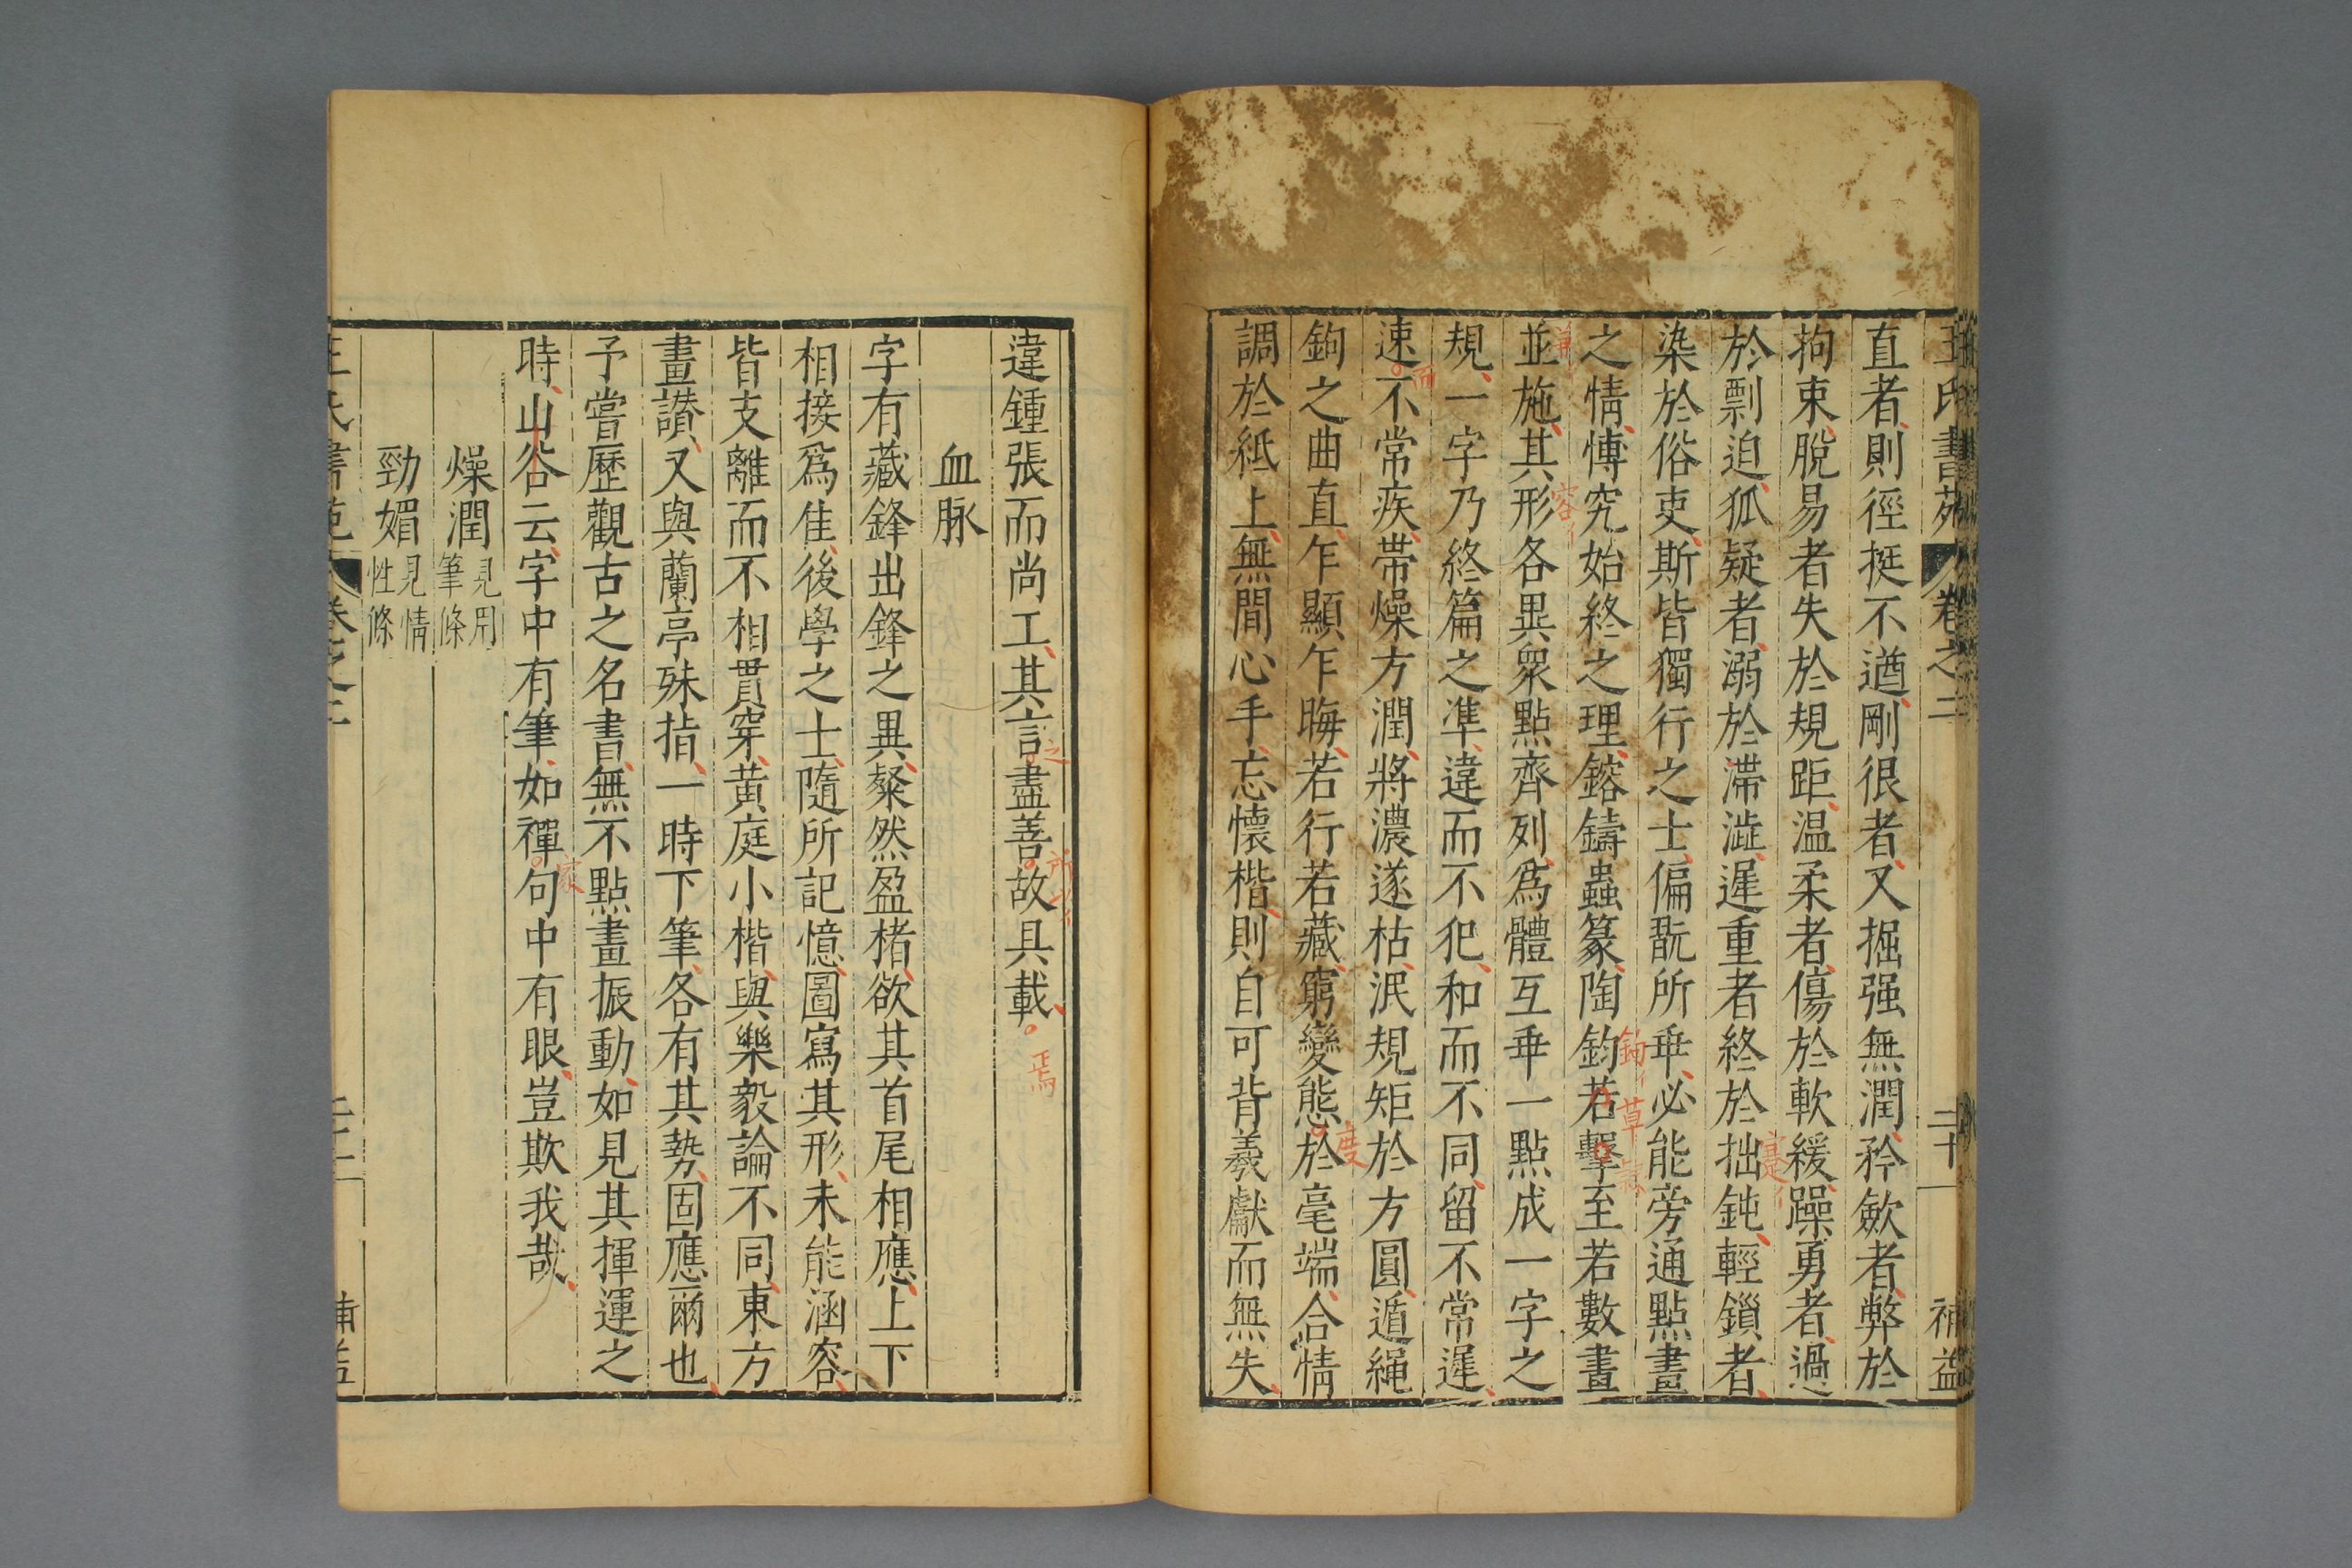 王氏書苑 卷之二 二十一 補益
直者則徑挺不遒剛很者又掘强無潤矜斂者弊於
拘束脫易者失於規距温柔者傷於軟緩躁勇者過
於剽迫狐疑者溺於滞澁遲重者終於拙鈍輕鎖者
染於俗吏斯皆獨行之士偏翫所乖必能旁通點畫
之情愽究始終之理鎔鑄蟲篆陶鈞若擊至若數畫
並施其形各異衆點齊列爲體互乖一點成一字之
規一字乃終篇之凖違而不犯和而不同留不常遲
速不常疾帶燥方潤將濃遂枯泯規矩於方圓遁繩
鉤之曲直乍顯乍晦若行若藏窮變態於毫端合情
調於紙上無間心手忘懐楷則自可背羲獻而無失
違鍾張而尚工其言盡善故具載
血脉
字有藏鋒出鋒之異粲然盈楮欲其首尾相應上下
相接爲佳後學之士隨所記憶圖寫其形未能涵容
皆支離而不相貫穿黃庭小楷與樂毅論不同東方
畫讃又與蘭亭殊指一時下筆各有其勢固應爾也
予嘗歷觀古之名書無不點畫振動如見其揮運之
時山谷云字中有筆如禪句中有眼豈欺我哉
燥潤 見用筆條
勁媚 見情性條
王氏書苑 卷之二